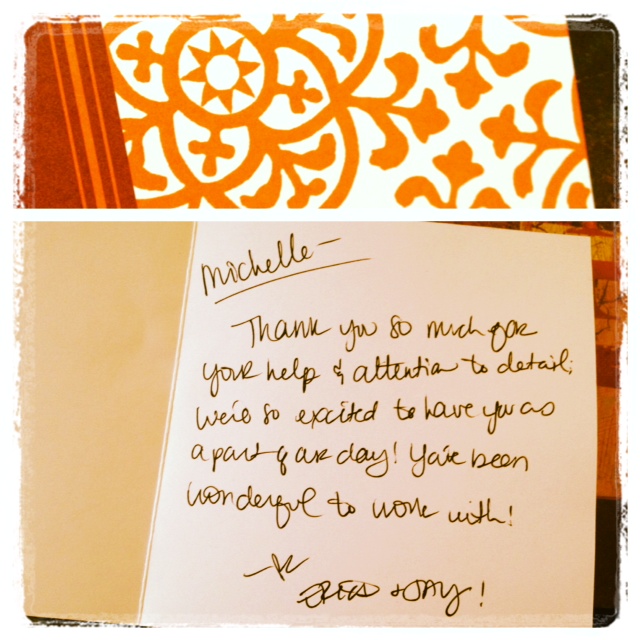 Michelle—
Thank you so much for
your help & attention to detail;
We're so excited to have you as
a part of our day! You've been
wonderful to work with!
+ JAY!